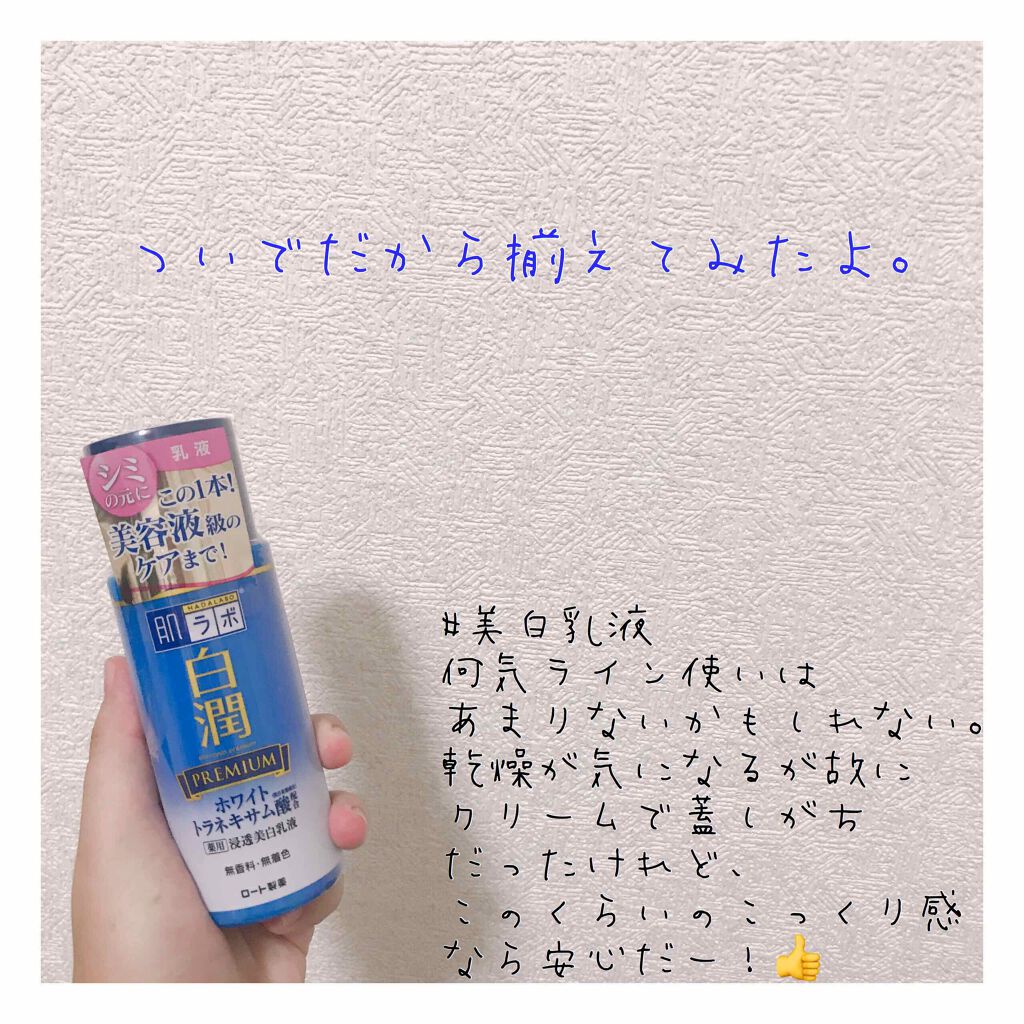 ついでだから揃えてみたよ。
乳液
シミ
の元に
この1本!
美容液級の
ケアまで!
HADALABO
肌ラボ
白潤
PREMIUM
ホワイト
トラネキサム酸配合
薬用 浸透美白乳液
無香料・無着色
ロート製薬
#美白乳液
何気ライン使いは
あまりないかもしれない。
乾燥が気になるが故に
クリームで蓋しがち
だったけれど、
このくらいのこっくり感
なら安心だー!👍